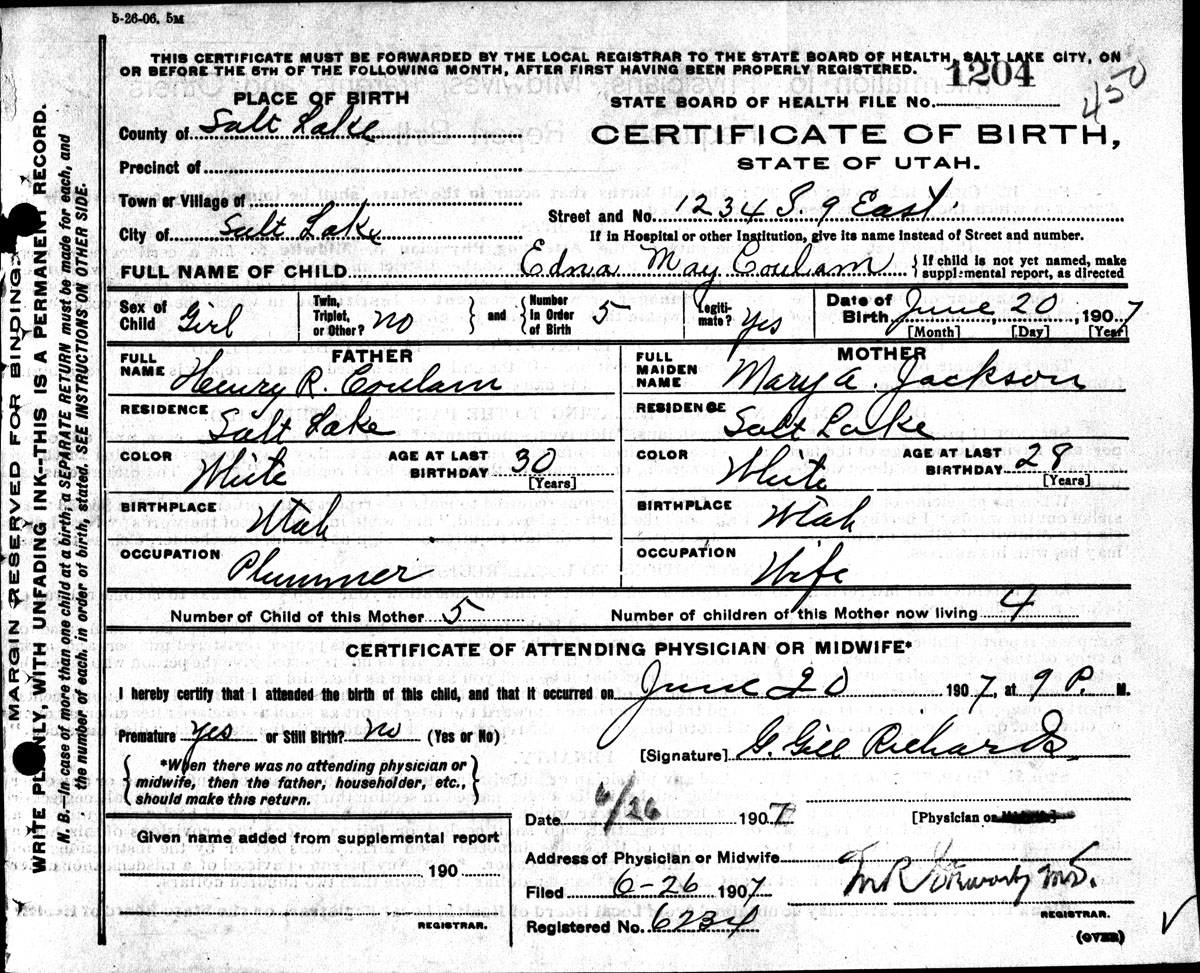 5-26-06. 5M
THIS CERTIFICATE MUST BE FORWARDED BY THE LOCAL REGISTRAR TO THE STATE BOARD OF HEALTH, SALT LAKE CITY, ON
OR BEFORE THE 5TH OF THE FOLLOWING MONTH, AFTER FIRST HAVING BEEN PROPERLY REGISTERED.
1204
450
PLACE OF BIRTH
STATE BOARD OF HEALTH FILE NO.
County of Salt Lake
CERTIFICATE OF BIRTH,
STATE OF UTAH.
Precinct of
Town or Village of
Street and No. 1234 S. 9 East
City of Salt Lake
If in Hospital or other Institution, give its name instead of Street and number.
FULL NAME OF CHILD Edna May Coulam { If child is not yet named, make supplemental report, as directed
Sex of Child Girl
Twin, Triplet, or Other? no } and { Number In Order of Birth 5
Legiti-mate? Yes
Date of Birth June 20, 1907
[Month] [Day] [Year]
FATHER
FULL NAME Henry R. Coulam
RESIDENCE Salt Lake
COLOR White AGE AT LAST BIRTHDAY 30 [Years]
BIRTHPLACE Utah
OCCUPATION Plummer
MOTHER
FULL MAIDEN NAME Mary A. Jackson
RESIDENCE Salt Lake
COLOR White AGE AT LAST BIRTHDAY 28 [Years]
BIRTHPLACE Utah
OCCUPATION Wife
Number of Child of this Mother 5 Number of children of this Mother now living 4
CERTIFICATE OF ATTENDING PHYSICIAN OR MIDWIFE*
I hereby certify that I attended the birth of this child, and that it occurred on June 20 1907, at 9 P. M.
Premature yes or Still Birth? no (Yes or No)
[Signature] G. Gill Richards
*When there was no attending physician or
midwife, then the father, householder, etc.,
should make this return.
Date 6/26 1907
[Physician or
Given name added from supplemental report
190
REGISTRAR.
Address of Physician or Midwife
Filed 6-26 1907
M.D.
REGISTRAR.
Registered No. 6234
(OVER)
"MARGIN RESERVED FOR BINDING"
WRITE PLAINLY, WITH UNFADING INK—THIS IS A PERMANENT RECORD.
N. B.—In case of more than one child at a birth, a SEPARATE RETURN must be made for each, and
the number of each, in order of birth, stated. SEE INSTRUCTIONS ON OTHER SIDE.